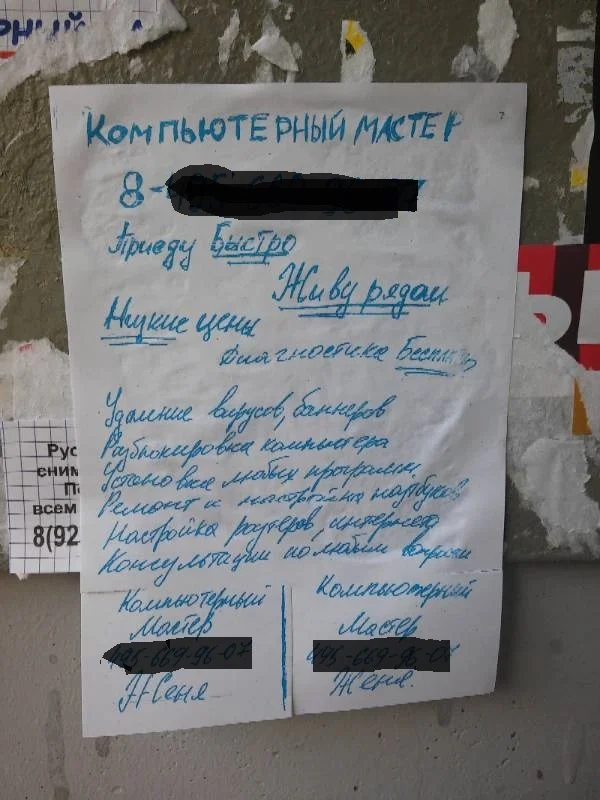 КОМПЬЮТЕРНЫЙ МАСТЕР
8-
Приеду Быстро
Живу рядом
Низкие цены
Диагностика Бесплатно
Удаление вирусов, баннеров
Разблокировка компьютера
Установка любых программ
Ремонт и настройка ноутбуков
Настройка роутеров, интернета
Консультации по любым вопросам
Компьютерный
Мастер
Женя
Компьютерный
Мастер
Женя.
Рус
сним
всем
8(92